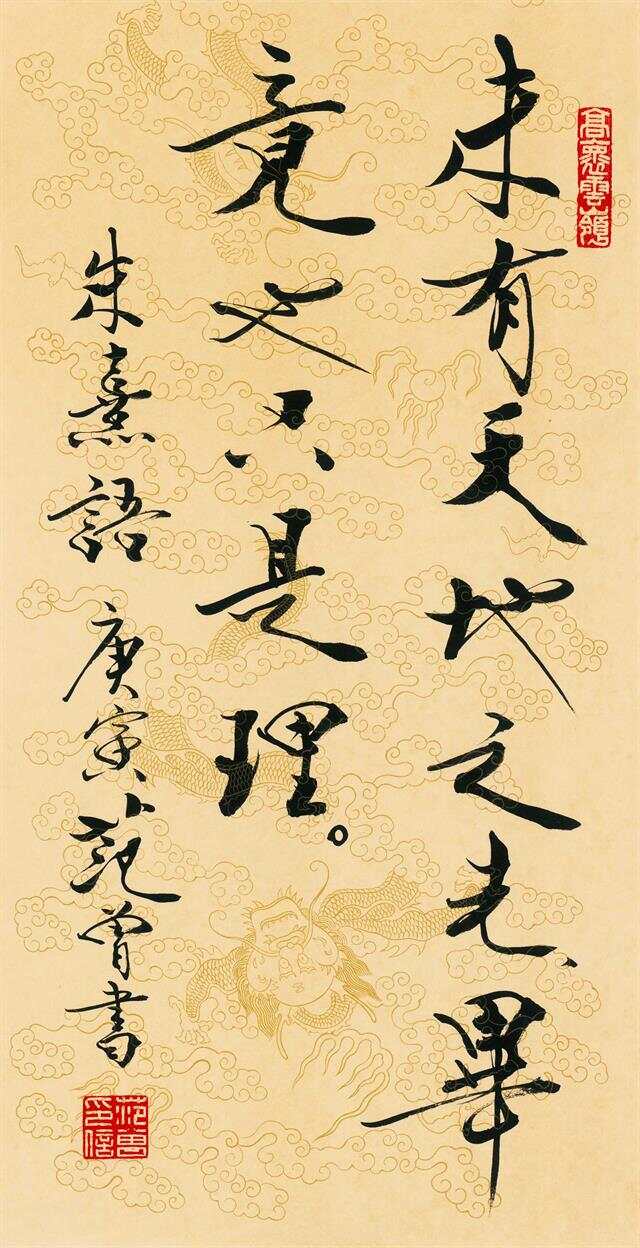 未有天地之先、畢
竟也只是理。
朱熹語 庚寅 范曾書
范曾印信